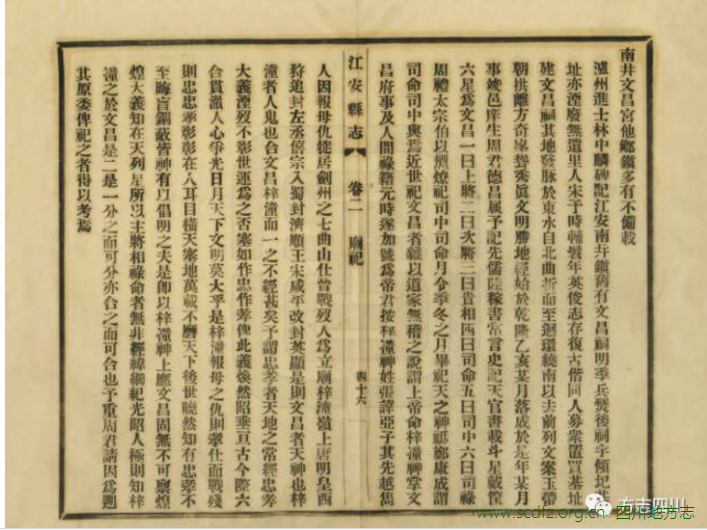 南井文昌宮他鄉鎭多有不備載
瀘州進士林中麟碑記江安南井鎭舊有文昌祠明季兵燹後祠宇傾圮基
址亦湮廢無遺里人宋子時輔髫年英俊志存復古偕同人募衆置買基址
建文昌祠其地發脉於東水自北曲折而至迴環繞南以去前列文案玉帶
朝拱離方奇峯聳秀眞文明勝地經始於乾隆乙亥某月落成於是年某月
事竣邑庠生周君德昌屬予記之先儒陸稼書常言史記天官書載斗星戴筐
六星爲文昌一曰上將二曰次將三曰貴相四曰司命五曰司中六曰司祿
周禮太宗伯以槱燎祀司中司命月令季冬之月畢祀天之神祗鄭康成謂
司命司中與焉近世祀文昌者雜以道家無稽之說謂上帝命梓潼神掌文
昌府事及人間祿籍元時遂加號爲帝君按梓潼神姓張諱亞子其先越雋
江安縣志
卷二 廟祀
四十六
人因報母仇徙居劍州之七曲山仕晉戰歿人爲立廟梓潼嶺上唐明皇西
狩追封左丞僖宗入蜀封濟順王宋咸平改封英顯是則文昌者天神也梓
潼者人鬼也合文昌梓潼而一之不經甚矣予謂忠孝者天地之常經忠孝
大義湮烈不彰世運爲之否塞如作忠作孝俾此義煥然昭垂亘古今際六
合貫澈人心爭光日月天下文明莫大乎是梓潼報母之仇則孝仕而戰殁
則忠忠孝彰彰在人耳目橫天塞地萬載不磨天下後世曉然知有忠孝不
至晦盲錮蔽皆神有以倡明之夫是卽以梓潼神上應文昌固無不可禦煌
煌大義知在天列星所以主將相祿命者無非經緯綱紀光昭人極則知梓
潼之於文昌是二是一分之而可分亦合之而可合也予重周君請因爲遡
其原委俾祀之者得以考焉
方志四川
www.scdfz.org.cn 四川地方志